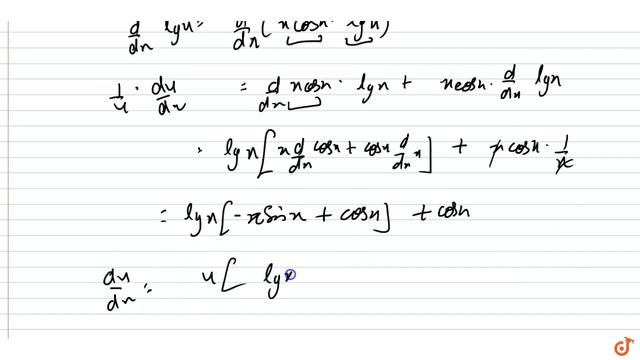 d/dx lgu = d/dx (x cosx · lgx)
1/u · du/dx = d/dx x cosx · lgx + x cosx · d/dx lgx
· lgx [ x d/dx cosx + cosx d/dx x ] + x cosx · 1/x
= lgx [ -x sinx + cosx ] + cosx
du/dx = u [ lgx